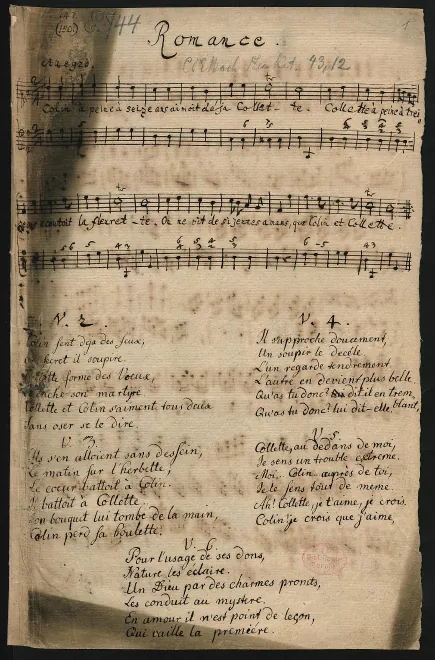 744
Romance.
1
Colin à peine à seize ans aimoit déja Collet-te. Collette à peine à trei
ecoutoit la fleuret-te. On ne vit de si jeunes amans, que Colin et Collette.
V. 2.
Colin sent deja des feux,
secret il soupire.
forme des Voeux,
cache son martyre
Collette et Colin s'aiment tous deux
sans oser se le dire.
V. 3.
Ils s'en alloient sans dessein,
Le matin sur l'herbette,
Le coeur battoit à Colin.
Il battoit à Collette.
Son bouquet lui tombe de la main,
Colin perd sa houlette.
V. 4.
Il s'approche doucement,
Un soupir le decelle
L'un regarde tendrement
L'autre en devient plus belle.
Qu'as tu donc? dit il en trem
Qu'as tu donc? lui dit-elle, blant,
V. 5
Collette, au dedans de moi,
Je sens un trouble extreme.
Moi, Colin auprès de toi,
Je le sens tout de meme
Ah! Collette, je t'aime, je crois.
Colin! je crois que j'aime,
V. 6
Pour l'usage de ses dons,
Nature les éclaire.
Un Dieu par des charmes promts,
Les conduit au mystere.
En amour il n'est point de leçon,
Qui vaille la premiére.